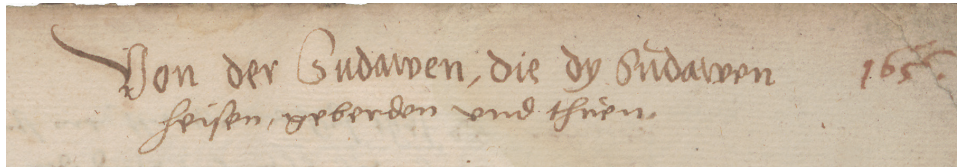 Von der Sudawen, die dy Sudawen
heisen, geberden vnd thuen.